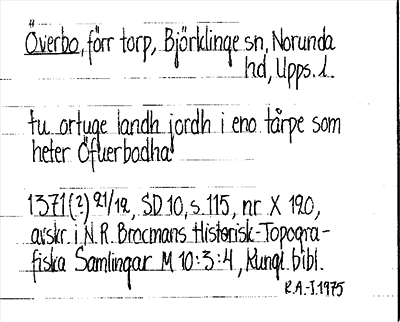 Överbo, förr torp, Björklinge sn, Norunda
hd, Upps. l.
tu ortuge landh jordh i eno tårpe som
heter Öfuerbodha
1371(?) 21/12, SD 10, s. 115, nr X 190,
avskr. i N. R. Brocmans Historisk-Topogra-
fiska Samlingar M 10:3:4, Kungl. bibl.
R.A.-J. 1975